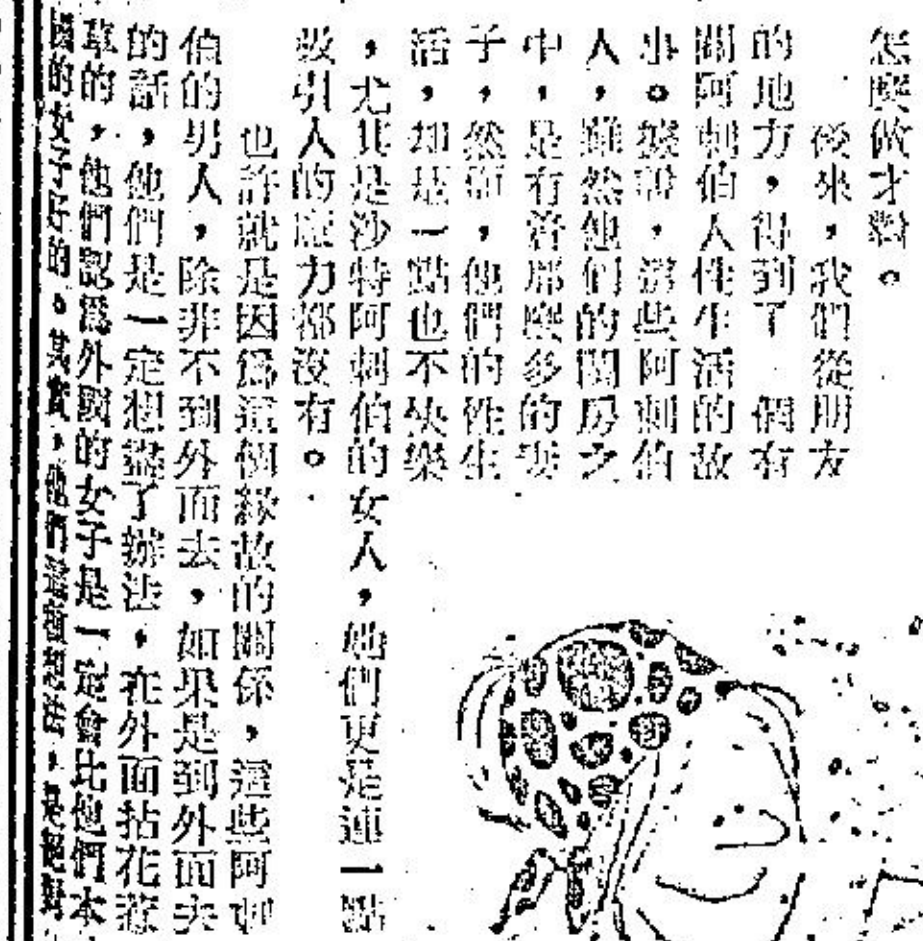 怎麼做才對。
後來,我們從朋友
的地方,得到了一個有
關阿刺伯人性生活的故
事。據說,這些阿刺伯
人,雖然他們的閨房之
中,是有著那麼多的妻
子,然而,他們的性生
活,却是一點也不快樂
,尤其是沙特阿刺伯的女人,她們更是連一點
吸引人的應力都沒有。
也許就是因爲這個緣故的關係,這些阿刺
伯的男人,除非不到外面去,如果是到外面去
的話,他們是一定想盡了辦法,在外面拈花惹
草的,他們認爲外國的女子是一定會比他們本
國的女子好的。其實,他們這種想法,是絕對